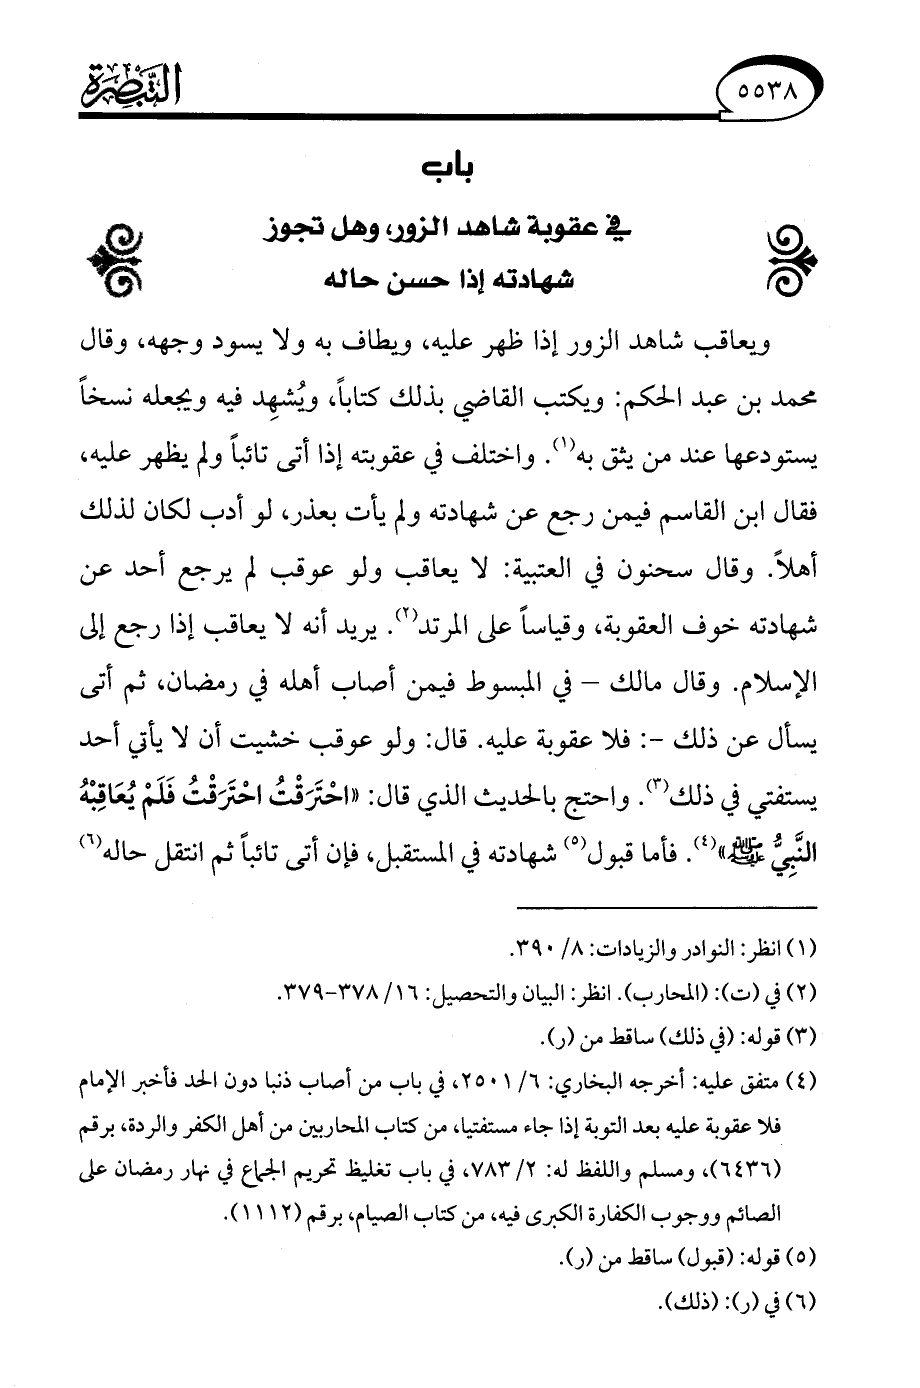 التبصرة
٥٥٣٨
باب
في عقوبة شاهد الزور، وهل تجوز
شهادته إذا حسن حاله
ويعاقب شاهد الزور إذا ظهر عليه، ويطاف به ولا يسود وجهه، وقال
محمد بن عبد الحكم: ويكتب القاضي بذلك كتاباً، ويُشهِد فيه ويجعله نسخاً
يستودعها عند من يثق به(١). واختلف في عقوبته إذا أتى تائباً ولم يظهر عليه،
فقال ابن القاسم فيمن رجع عن شهادته ولم يأت بعذر، لو أدب لكان لذلك
أهلاً. وقال سحنون في العتبية: لا يعاقب ولو عوقب لم يرجع أحد عن
شهادته خوف العقوبة، وقياساً على المرتد(٢). يريد أنه لا يعاقب إذا رجع إلى
الإسلام. وقال مالك – في المبسوط فيمن أصاب أهله في رمضان، ثم أتى
يسأل عن ذلك –: فلا عقوبة عليه. قال: ولو عوقب خشيت أن لا يأتي أحد
يستفتي في ذلك(٣). واحتج بالحديث الذي قال: «احْتَرَقْتُ احْتَرَقْتُ فَلَمْ يُعَاقِبْهُ
النَّبِيُّ ﷺ»(٤). فأما قبول(٥) شهادته في المستقبل، فإن أتى تائباً ثم انتقل حاله(٦)
(١) انظر: النوادر والزيادات: ٨/ ٣٩٠.
(٢) في (ت): (المحارب). انظر: البيان والتحصيل: ١٦/ ٣٧٨-٣٧٩.
(٣) قوله: (في ذلك) ساقط من (ر).
(٤) متفق عليه: أخرجه البخاري: ٦/ ٢٥٠١، في باب من أصاب ذنبا دون الحد فأخبر الإمام
فلا عقوبة عليه بعد التوبة إذا جاء مستفتيا، من كتاب المحاربين من أهل الكفر والردة، برقم
(٦٤٣٦)، ومسلم واللفظ له: ٢/ ٧٨٣، في باب تغليظ تحريم الجماع في نهار رمضان على
الصائم ووجوب الكفارة الكبرى فيه، من كتاب الصيام، برقم (١١١٢).
(٥) قوله: (قبول) ساقط من (ر).
(٦) في (ر): (ذلك).